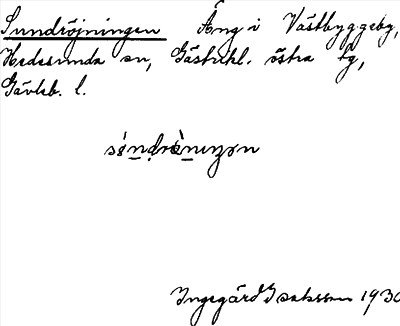 Sundröjningen Äng i Västbyggeby,
Hedesunda sn, Gästrikl. östra tg,
Gävleb. l.
Ingegärd Isaksson 1930